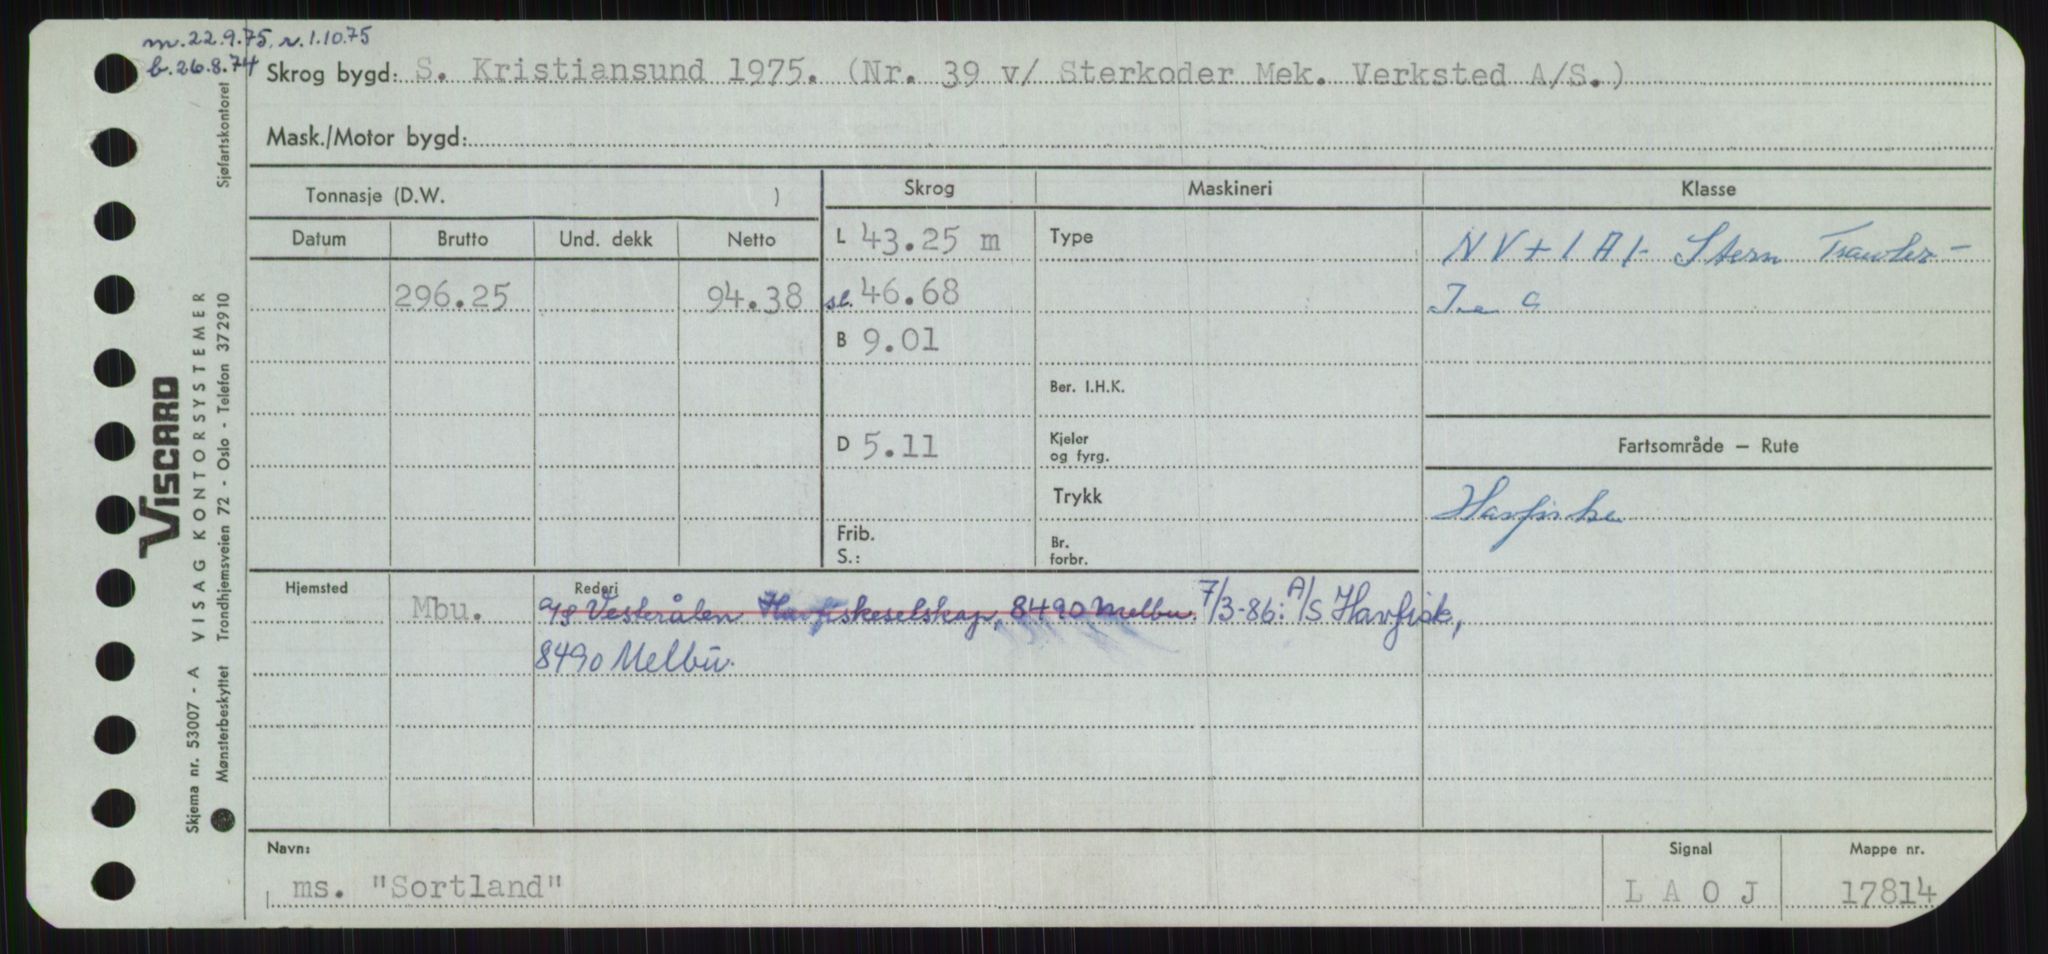 m. 22.9.75, r. 1.10.75
b. 26.8.74
Skrog bygd: S. Kristiansund 1975. (Nr. 39 v/ Sterkoder Mek. Verksted A/S.)
Mask./Motor bygd:
Tonnasje (D.W. )
Skrog
Maskineri
Klasse
Datum Brutto Und. dekk Netto
L 43.25 m
Type
NV+1A1- Stern Trawler -
296.25 94.38
sl. 46.68
Ice C
B 9.01
Ber. I.H.K.
D 5.11
Kjeler
og fyrg.
Fartsområde — Rute
Trykk
Havfiske
Frib.
S.:
Br.
forbr.
Hjemsted
Rederi
Mbu.
A/S Vesterålen Havfiskeselskap, 8490 Melbu. 7/3-86: A/S Havfisk,
8490 Melbu.
Navn:
Signal
Mappe nr.
ms. "Sortland"
L A O J
17814
Sjøfartskontoret
VISCARD
VISAG KONTORSYSTEMER
Trondhjemsveien 72 - Oslo - Telefon 372910
Skjema nr. 53007 - A
Mønsterbeskyttet